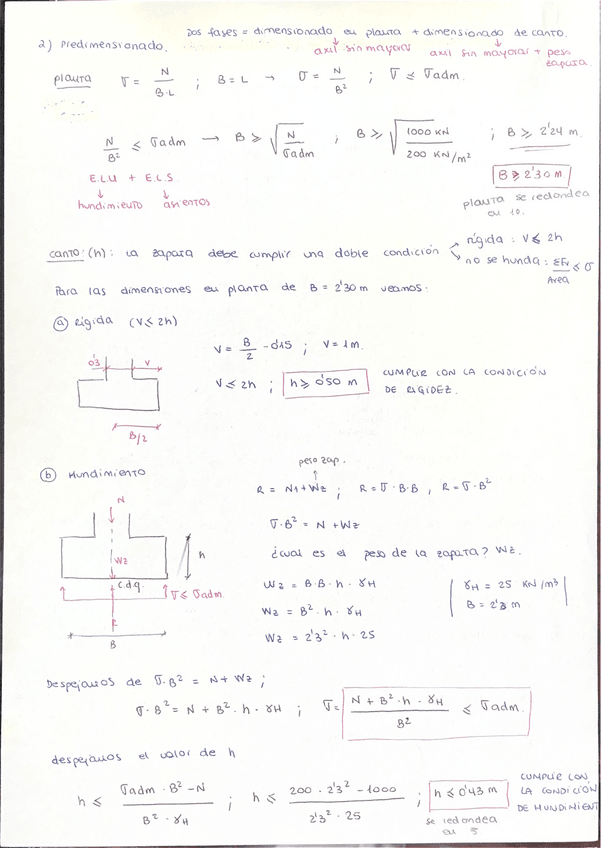 Dos fases = dimensionado en planta + dimensionado de canto.
2) Predimensionado.
axil sin mayorar axil sin mayorar + peso zapata.
planta σ = N/(B·L) ; B = L → σ = N/B² ; σ ≤ σadm.
N/B² ≤ σadm → B ≥ √(N/σadm) ; B ≥ √(1000 KN / 200 KN/m²) ; B ≥ 2'24 m.
E.L.U + E.L.S.
B ≥ 2'30 m
hundimiento asientos
planta se redondea
en 10.
canto: (h): La zapata debe cumplir una doble condición
rígida : V ≤ 2h
no se hunda : ΣFv/Area ≤ σ
Para las dimensiones en planta de B = 2'30 m veamos:
a) Rígida (V ≤ 2h)
0'3 V
B/2
V = B/2 - 0'15 ; V = 1 m.
V ≤ 2h ; h ≥ 0'50 m
CUMPLIR CON LA CONDICIÓN
DE RIGIDEZ.
b) Hundimiento
peso zap.
R = N1 + Wz ; R = σ · B · B , R = σ · B²
N
Wz
h
c.d.g.
σ ≤ σadm.
R
B
σ · B² = N + Wz
¿cual es el peso de la zapata? Wz.
Wz = B · B · h · γH
Wz = B² · h · γH
Wz = 2'3² · h · 25
γH = 25 KN/m³
B = 2'3 m
Despejamos de σ · B² = N + Wz ;
σ · B² = N + B² · h · γH ; σ = (N + B² · h · γH)/B² ≤ σadm.
despejamos el valor de h
h ≤ (σadm · B² - N)/(B² · γH) ; h ≤ (200 · 2'3² - 1000)/(2'3² · 25) ; h ≤ 0'43 m
se redondea
en 5
CUMPLIR CON
LA CONDICIÓN
DE HUNDIMIENT